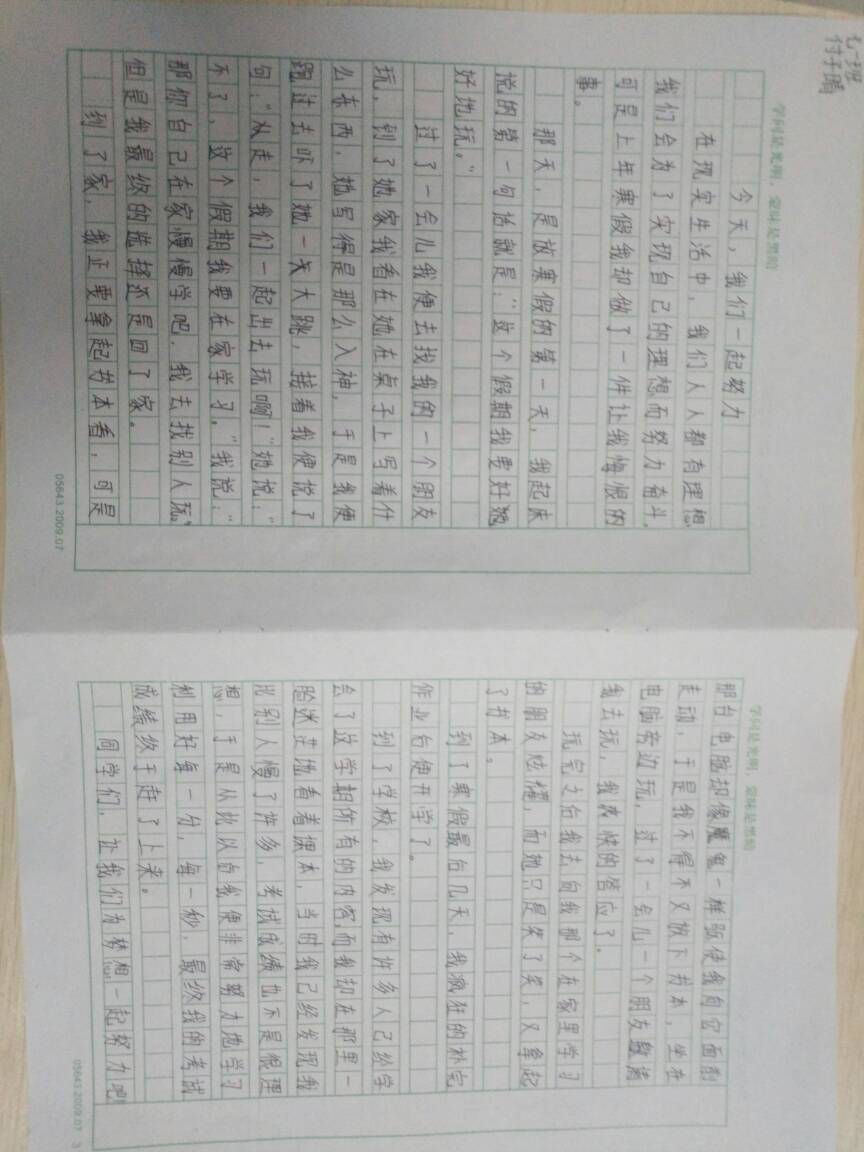 七一班
付子晴
学问是光明，蒙昧是黑暗
今天，我们一起努力
在现实生活中，我们人人都有理想
我们会为了实现自己的理想而努力奋斗。
可是上年寒假我却做了一件让我悔恨的
事。
那天，是放寒假的第一天，我起床
说的第一句话就是：“这个假期我要好
好地玩。”
过了一会儿我便去找我的一个朋友
玩，到了她家我看在她在桌子上写着什
么东西，她写得是那么入神，于是我便
跑过去吓了她一大跳，接着我便说了
句：“从走，我们一起出去玩啊！”她说：“
不了，这个假期我要在家学习。”我说：“
那你自己在家慢慢学吧，我去找别人玩。”
但是我最终的选择还是回了家。
到了家，我正要拿起书本看，可是
05643 2009.07
学问是光明，蒙昧是黑暗
那台电脑却像魔鬼一样驱使我向它面前
走动，于是我不得不又放下书本，坐在
电脑旁边玩，过了一会儿一个朋友邀请
我去玩，我爽快的答应了。
玩完之后我去向我那个在家里学习
的朋友炫耀，而她只是笑了笑，又拿起
了书本。
到了寒假最后几天，我疯狂的补完
作业后便开学了。
到了学校，我发现有许多人已经学
会了这学期所有的内容，而我却在那里一
脸迷茫地看着课本，当时我已经发现我
比别人慢了许多，考试成绩也不是很理
想，于是从此以后我便非常努力地学习
利用好每一分，每一秒，最终我的考试
成绩终于赶了上来。
同学们，让我们为梦想一起努力吧！
05643 2009.07 3